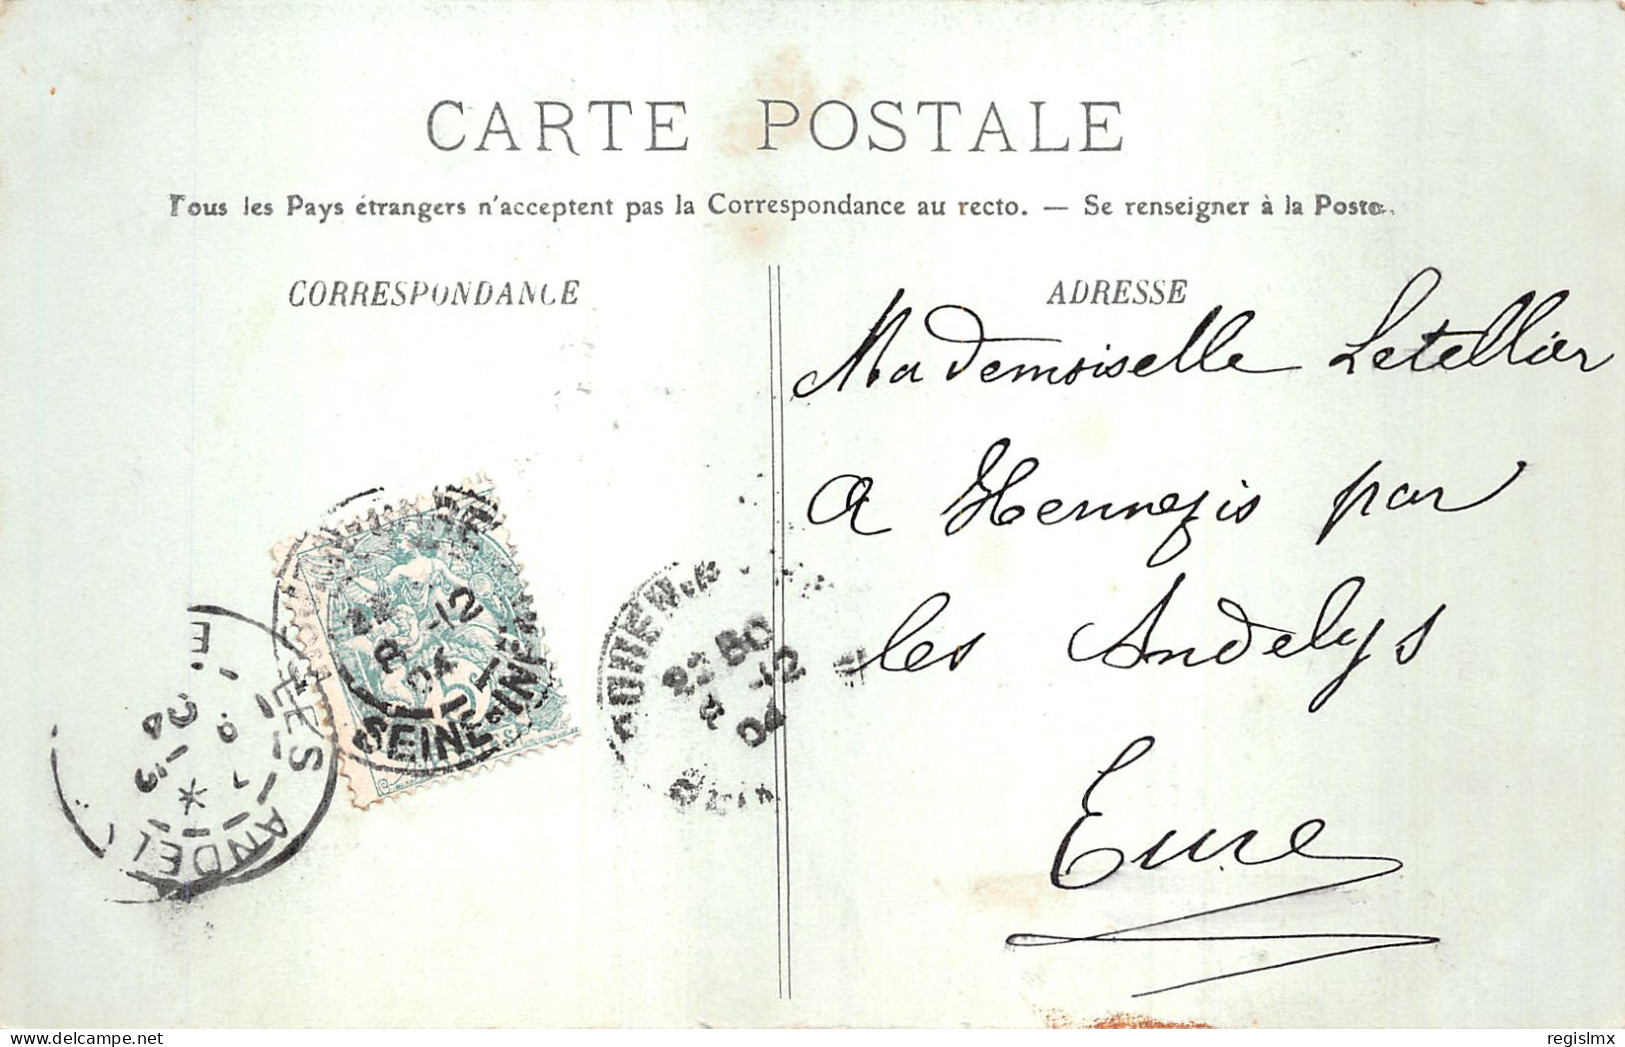 CARTE POSTALE
Tous les Pays étrangers n'acceptent pas la Correspondance au recto. — Se renseigner à la Poste.
CORRESPONDANCE
ADRESSE
Mademoiselle Letellier
a Hennezis par
les Andelys
Eure
8 -12
04
SEINE-INF
5
-12
04
LES ANDEL
regislmx
delcampe.net